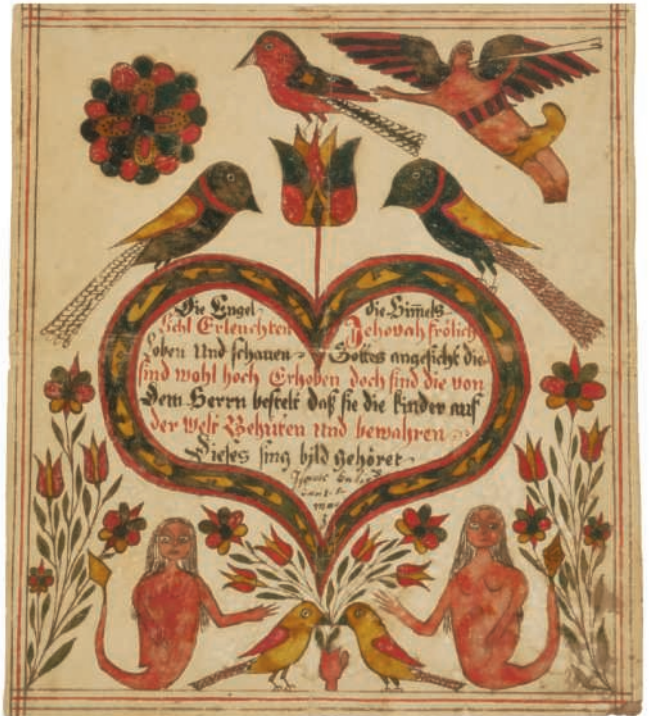 Die Engel die Himels
Licht Erleuchten Jehovah frölich
Loben Und schauen Gottes angesicht die
sind wohl hoch Erhoben doch sind die von
Dem Herrn bestelt daß sie die kinder auf
der Welt Behüten und bewahren
Dieses sing bild gehöret